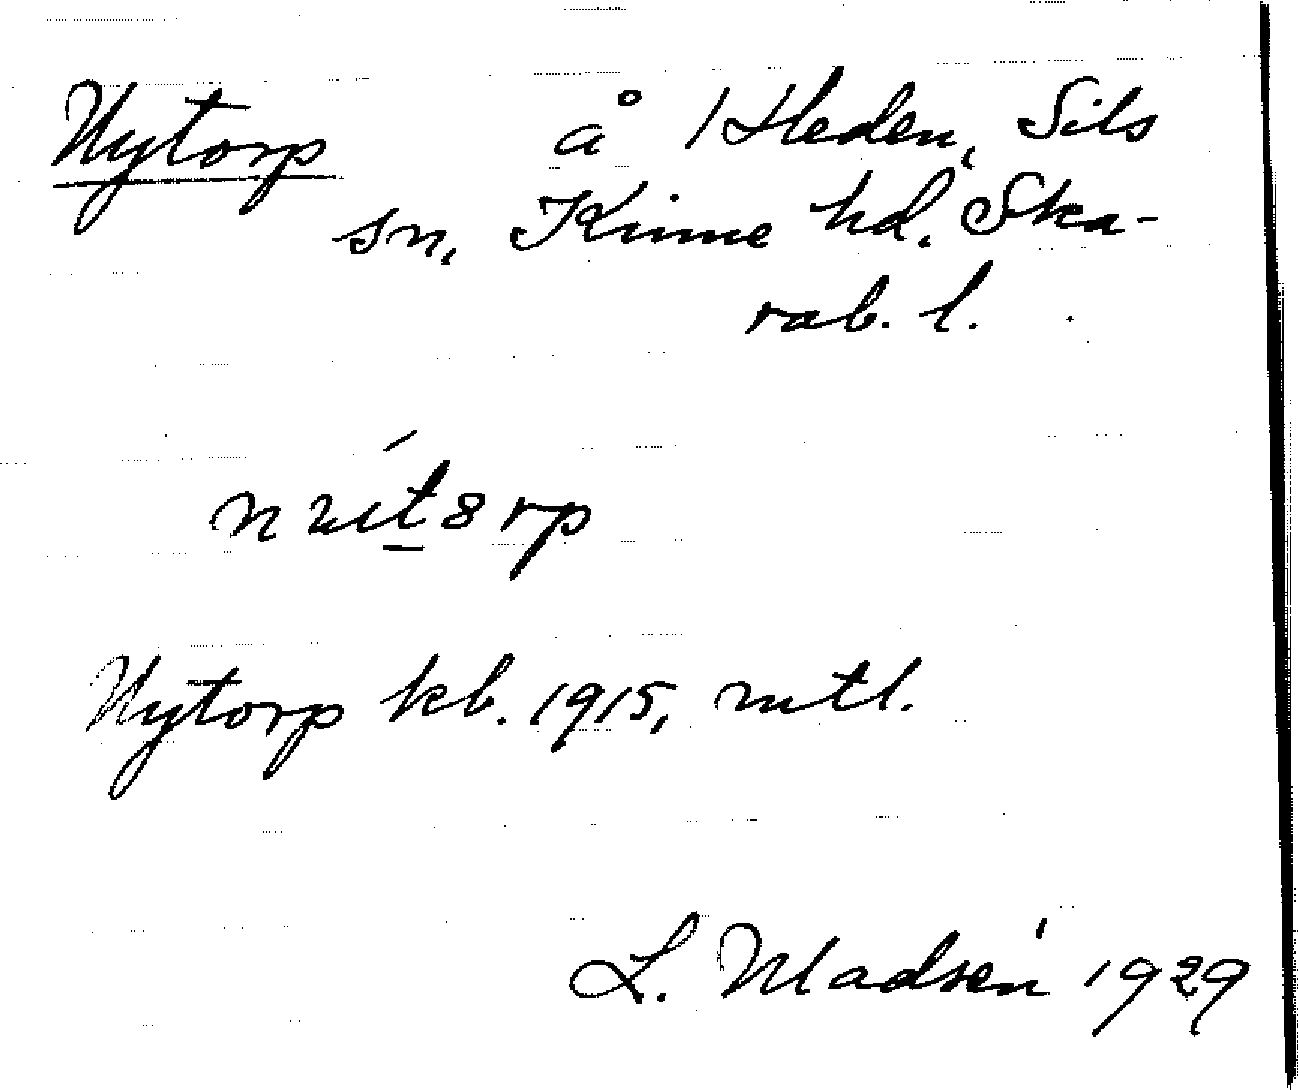 Nytorp å 1 Heden, Sils
sn, Kinne hd. Ska-
rab. l.
Nytorp kb. 1915, mtl.
L. Madsén 1929